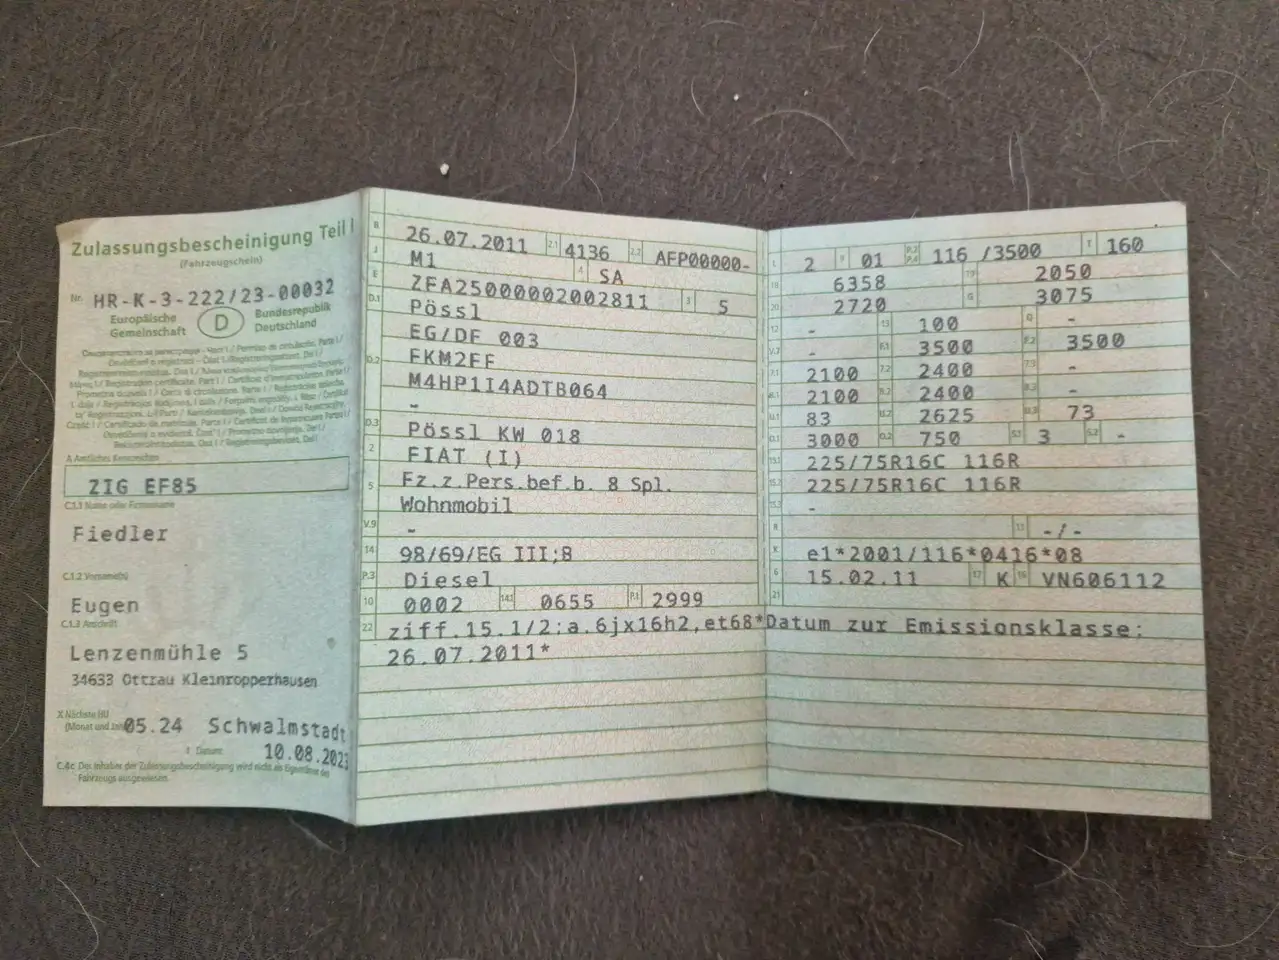 Zulassungsbescheinigung Teil I
(Fahrzeugschein)
Nr. HR-K-3-222/23-00032
Europäische Gemeinschaft D Bundesrepublik Deutschland
A Amtliches Kennzeichen
ZIG EF85
C.1.1 Name oder Firmenname
Fiedler
C.1.2 Vorname(n)
Eugen
C.1.3 Anschrift
Lenzenmühle 5
34633 Ottrau Kleinropperhausen
X Nächste HU
(Monat und Jahr) 05.24 Schwalmstadt
I Datum 10.08.2023
C.4c Der Inhaber der Zulassungsbescheinigung wird nicht als Eigentümer des
Fahrzeugs ausgewiesen.
B 26.07.2011 2.1 4136 2.2 AFP00000-
J M1 4 SA
E ZFA25000002002811 3 5
D.1 Pössl
EG/DF 003
D.2 FKM2FF
M4HP1I4ADTB064
-
D.3 Pössl KW 018
2 FIAT (I)
5 Fz.z.Pers.bef.b. 8 Spl.
Wohnmobil
V.9 -
14 98/69/EG III;B
P.3 Diesel
10 0002 14.1 0655 P.1 2999
22 ziff.15.1/2:a.6jx16h2,et68*Datum zur Emissionsklasse:
26.07.2011*
L 2 9 01 P.2 P.4 116 /3500 T 160
18 6358 19 2050
20 2720 G 3075
12 - 13 100 Q -
V.7 - F.1 3500 F.2 3500
7.1 2100 7.2 2400 7.3 -
8.1 2100 8.2 2400 8.3 -
U.1 83 U.2 2625 U.3 73
O.1 3000 O.2 750 S.1 3 S.2 -
15.1 225/75R16C 116R
15.2 225/75R16C 116R
15.3 -
R 11 -/-
K e1*2001/116*0416*08
6 15.02.11 17 K 16 VN606112
21